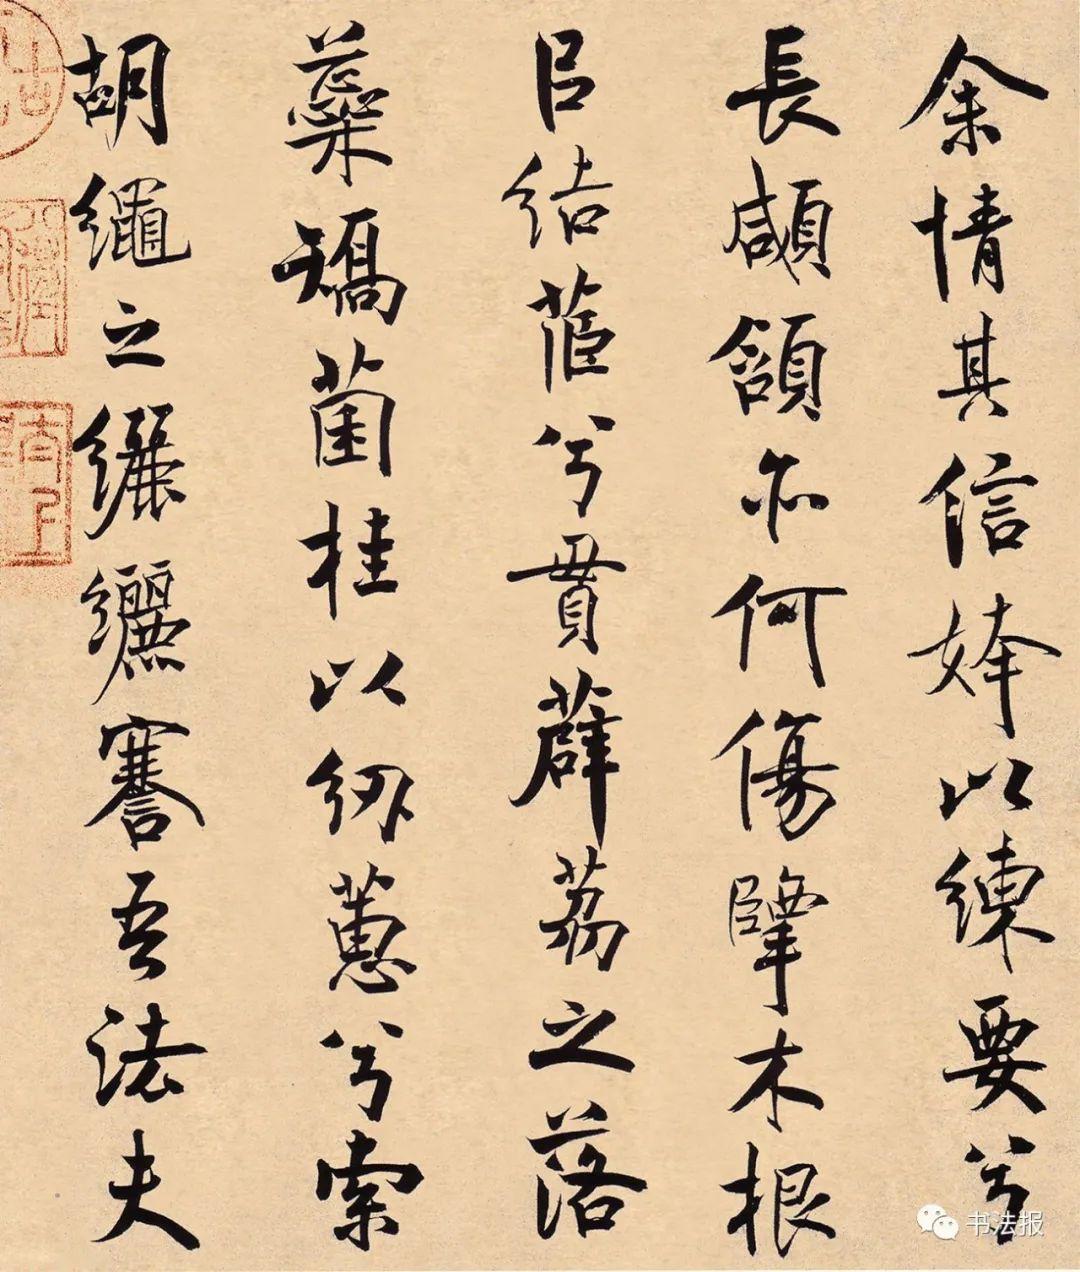 余情其信姱以練要兮
長顑頷亦何傷擥木根
㠯結茝兮貫薜荔之落
蘂矯菌桂以紉蕙兮索
胡繩之纚纚謇吾法夫
书法报